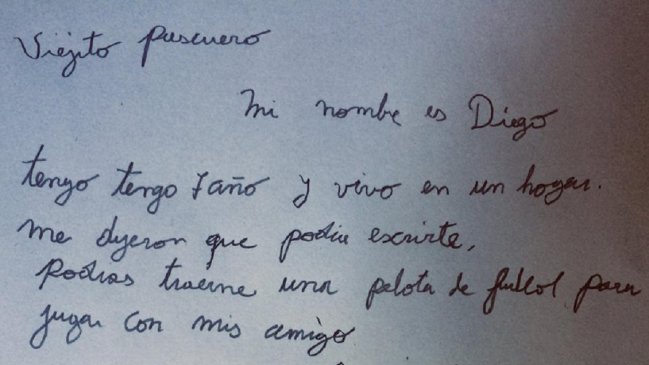 Viejito pascuero
Mi nombre es Diego
tengo tengo 7 año y vivo en un hogar.
me dijeron que podia escrirte,
Podrias traerme una pelota de futbol para
jugar con mis amigo